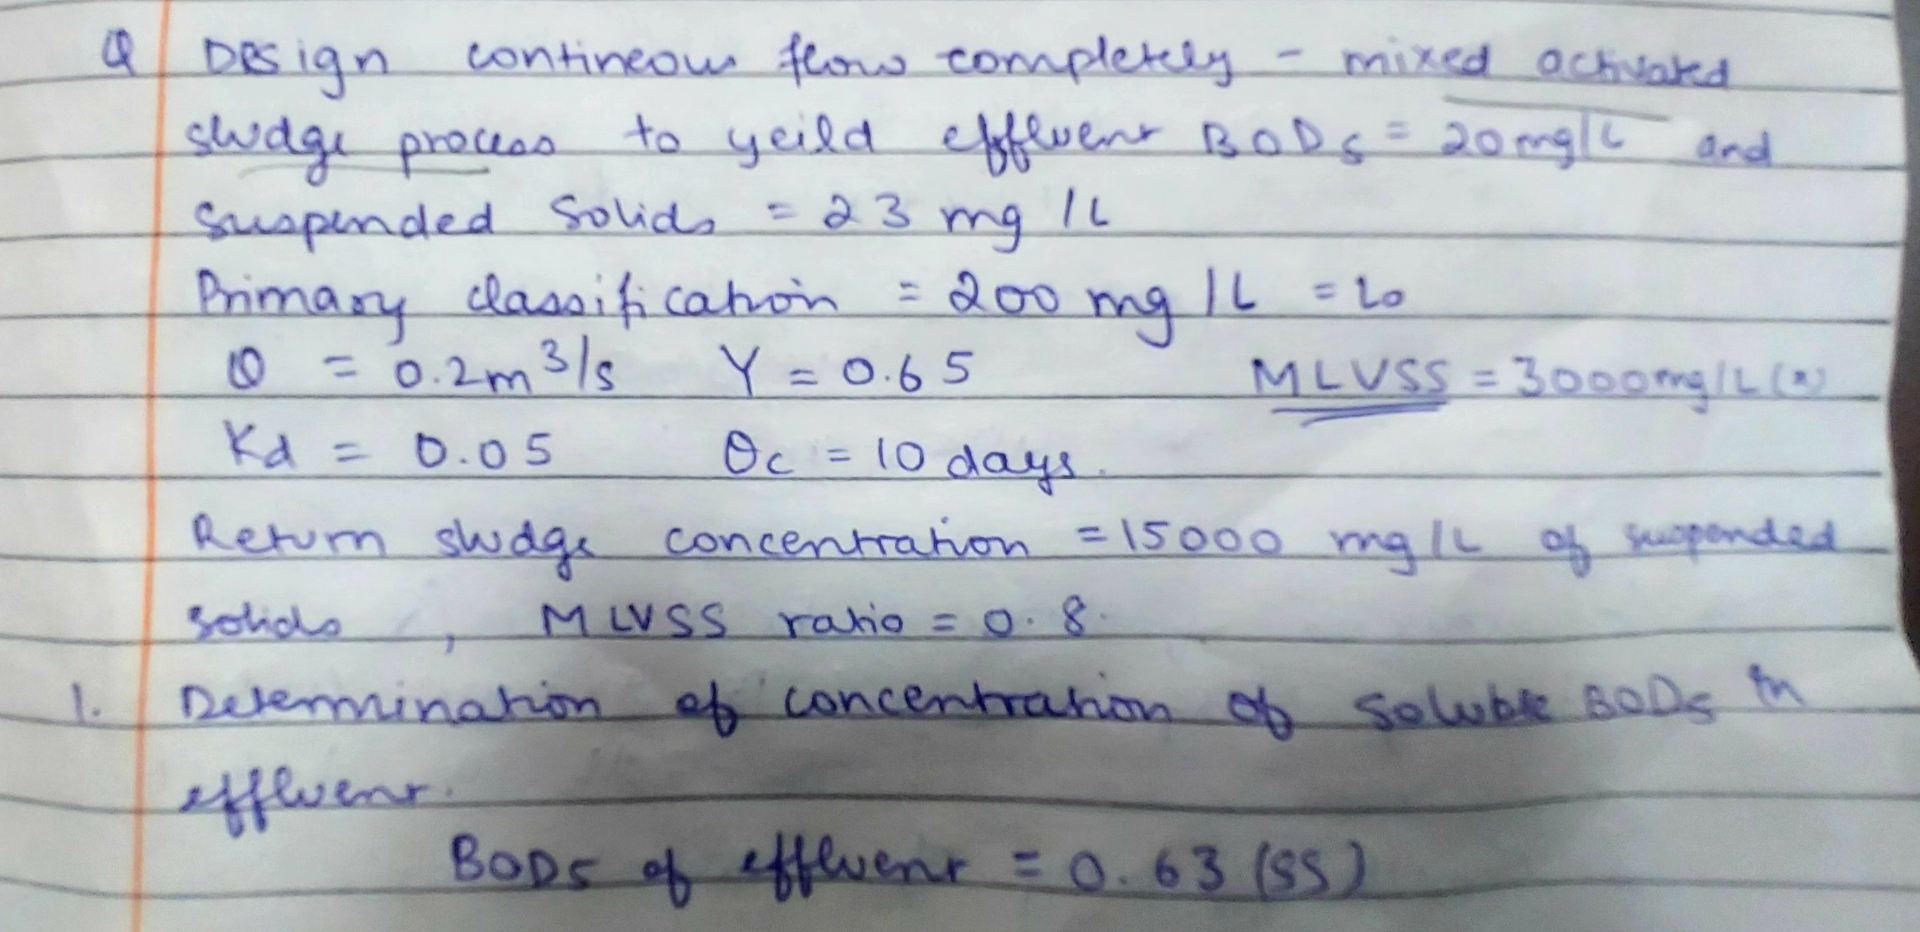 Q Design contineous flow completely - mixed activated
sludge process to yeild effluent BOD5 = 20 mg/L and
suspended solids = 23 mg/L
Primary classification = 200 mg/L = Lo
Q = 0.2m³/s Y = 0.65 MLVSS = 3000mg/L (x)
Kd = 0.05 θc = 10 days.
Return sludge concentration = 15000 mg/L of suspended
solids, MLVSS ratio = 0.8.
1. Determination of concentration of soluble BOD5 in
effluent.
BOD5 of effluent = 0.63 (SS)